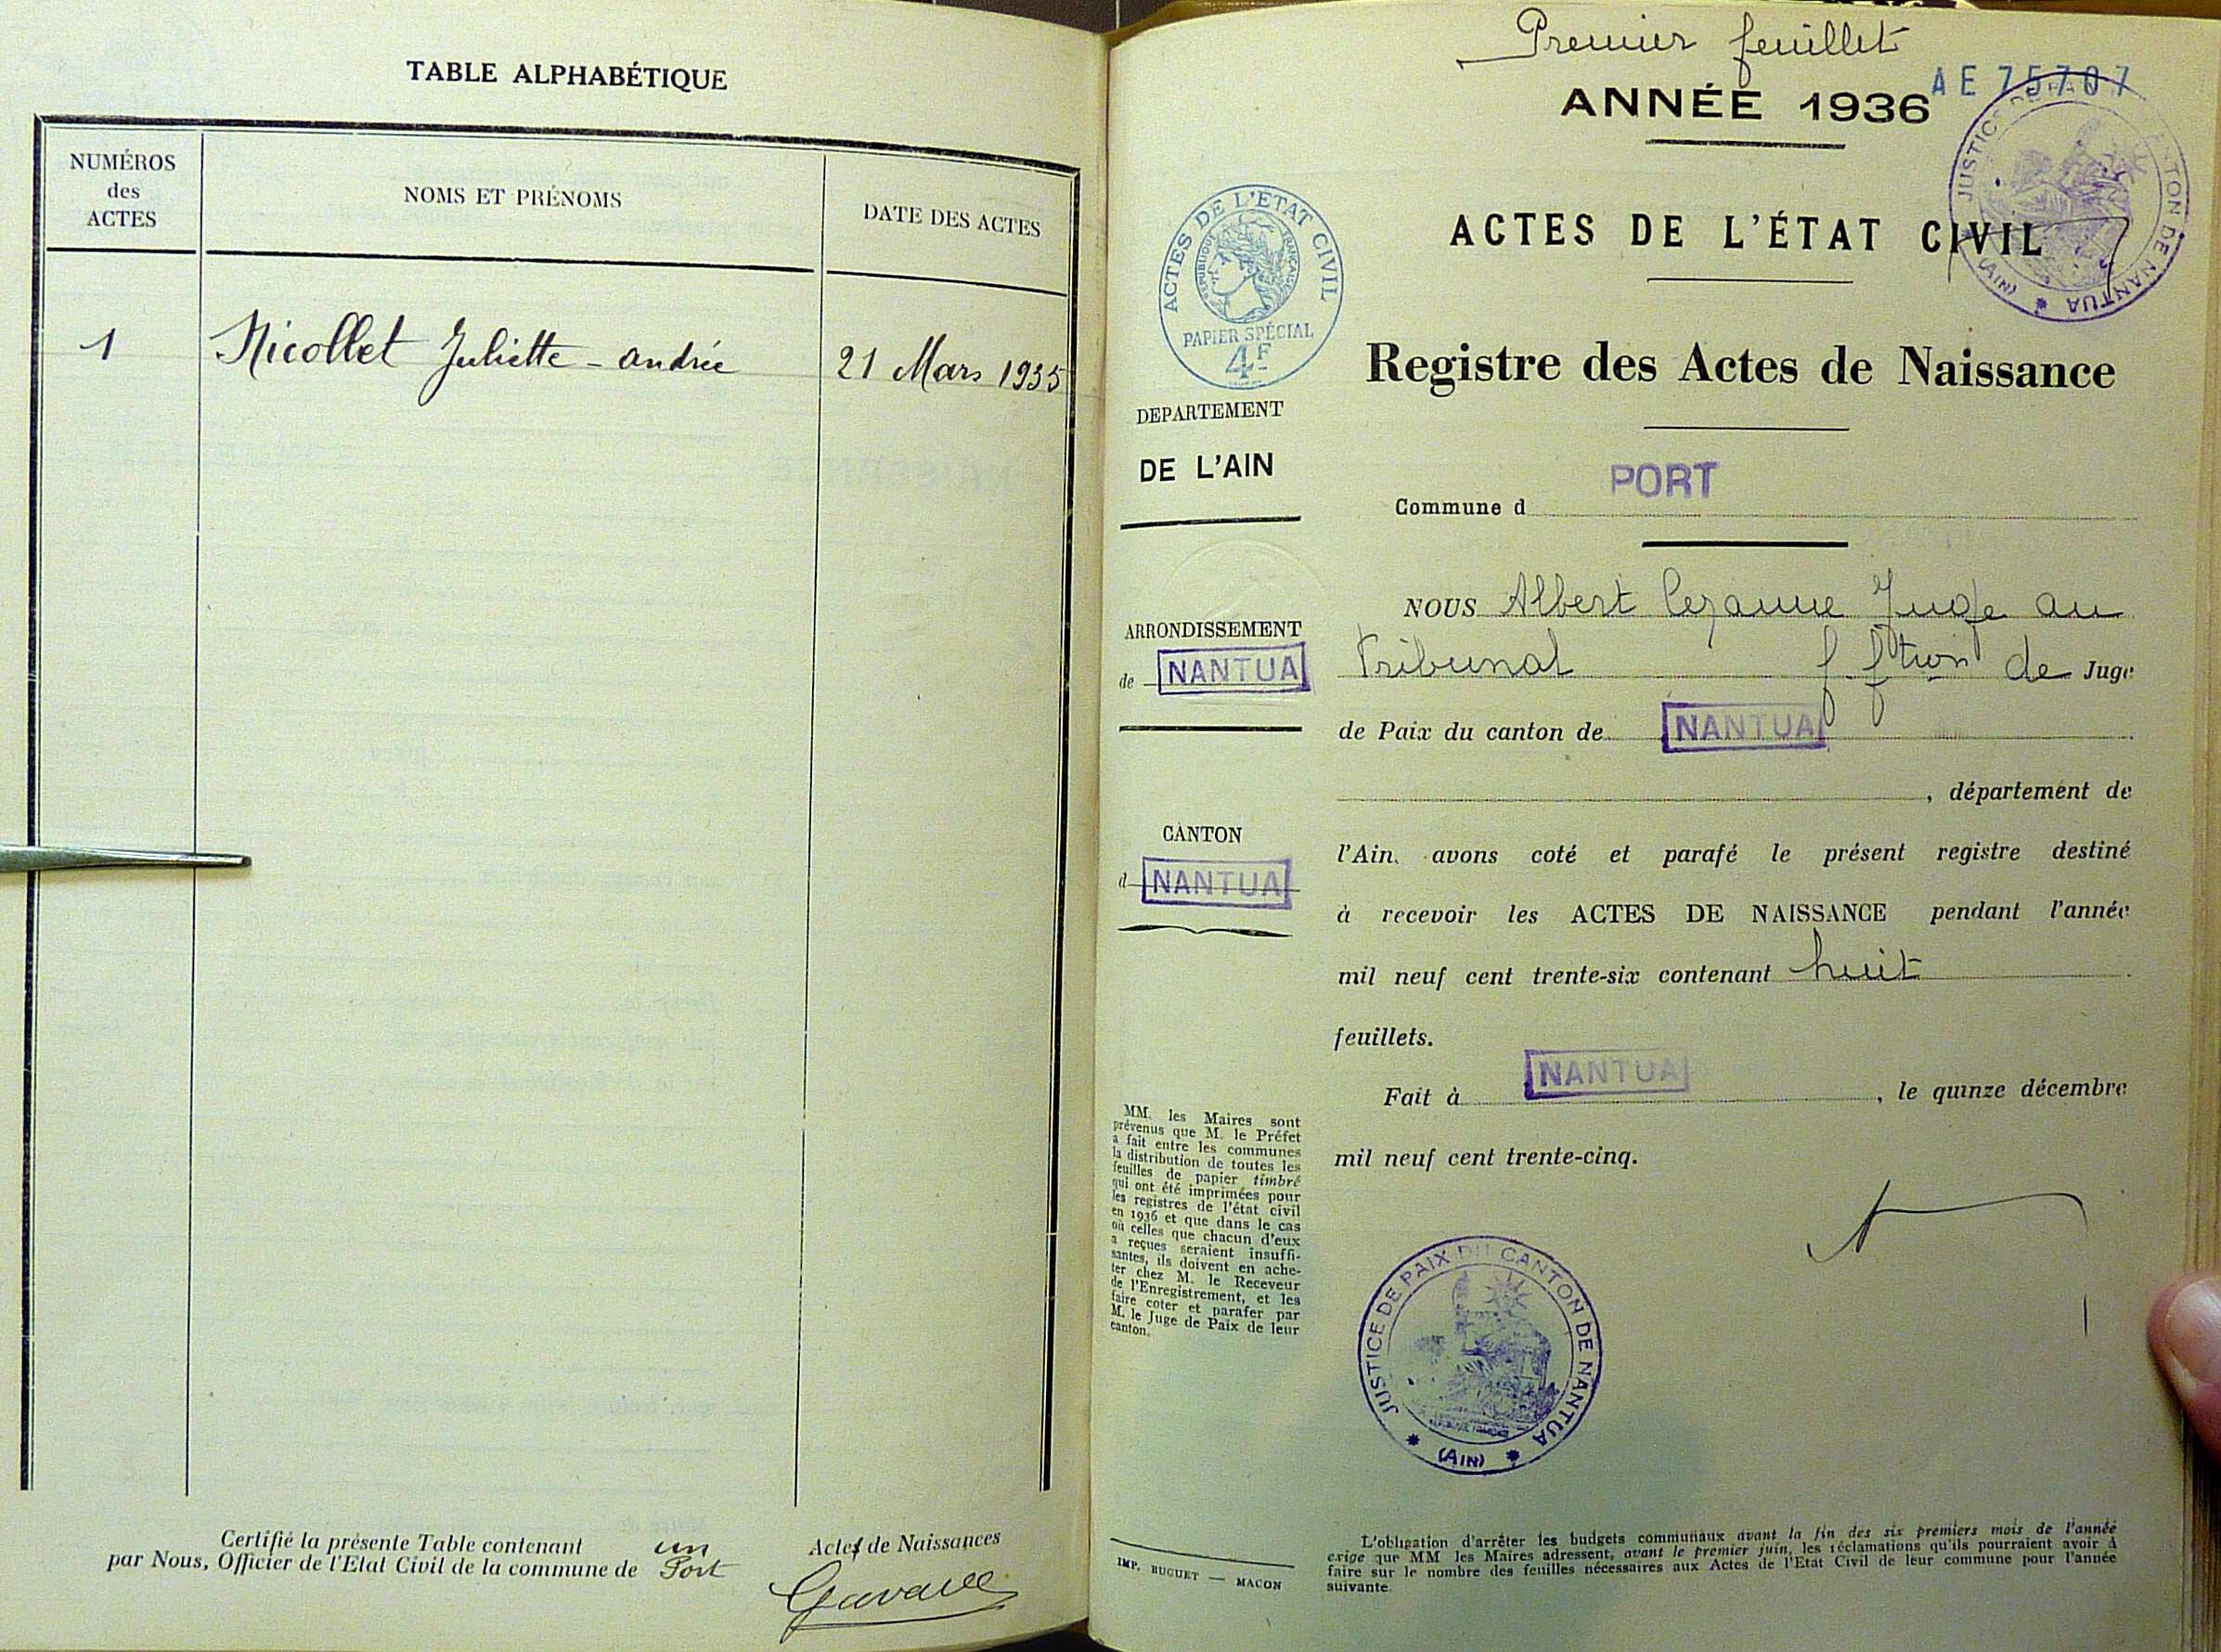 TABLE ALPHABÉTIQUE
NUMÉROS
des
ACTES
NOMS ET PRÉNOMS
DATE DES ACTES
1 Nicollet Juliette - andrée 21 Mars 1935
Certifié la présente Table contenant un Actes de Naissances
par Nous, Officier de l'Etat Civil de la commune de Port
Premier feuillet
AE 75707
ANNÉE 1936
JUSTICE DE PAIX CANTON DE NANTUA
(AIN)
ACTES DE L'ÉTAT CIVIL
ACTES DE L'ETAT CIVIL
REPUBLIQUE FRANÇAISE
PAPIER SPÉCIAL
4F
Registre des Actes de Naissance
DEPARTEMENT
DE L'AIN
Commune d PORT
ARRONDISSEMENT
de NANTUA
CANTON
d NANTUA
NOUS Albert Cezanne Juge au
Tribunal f. f.tion de Juge
de Paix du canton de NANTUA
, département de
l'Ain, avons coté et parafé le présent registre destiné
à recevoir les ACTES DE NAISSANCE pendant l'année
mil neuf cent trente-six contenant huit
feuillets.
Fait à NANTUA, le quinze décembre
mil neuf cent trente-cinq.
MM. les Maires sont
prévenus que M. le Préfet
a fait entre les communes
la distribution de toutes les
feuilles de papier timbré
qui ont été imprimées pour
les registres de l'état civil
en 1936 et que dans le cas
où celles que chacun d'eux
a reçues seraient insuffi-
santes, ils doivent en ache-
ter chez M. le Receveur
de l'Enregistrement, et les
faire coter et parafer par
M. le Juge de Paix de leur
canton.
JUSTICE DE PAIX DU CANTON DE NANTUA
(AIN)
IMP. BUGUET — MACON
L'obligation d'arrêter les budgets communaux avant la fin des six premiers mois de l'année
exige que MM les Maires adressent, avant le premier juin, les réclamations qu'ils pourraient avoir à
faire sur le nombre des feuilles nécessaires aux Actes de l'Etat Civil de leur commune pour l'année
suivante.